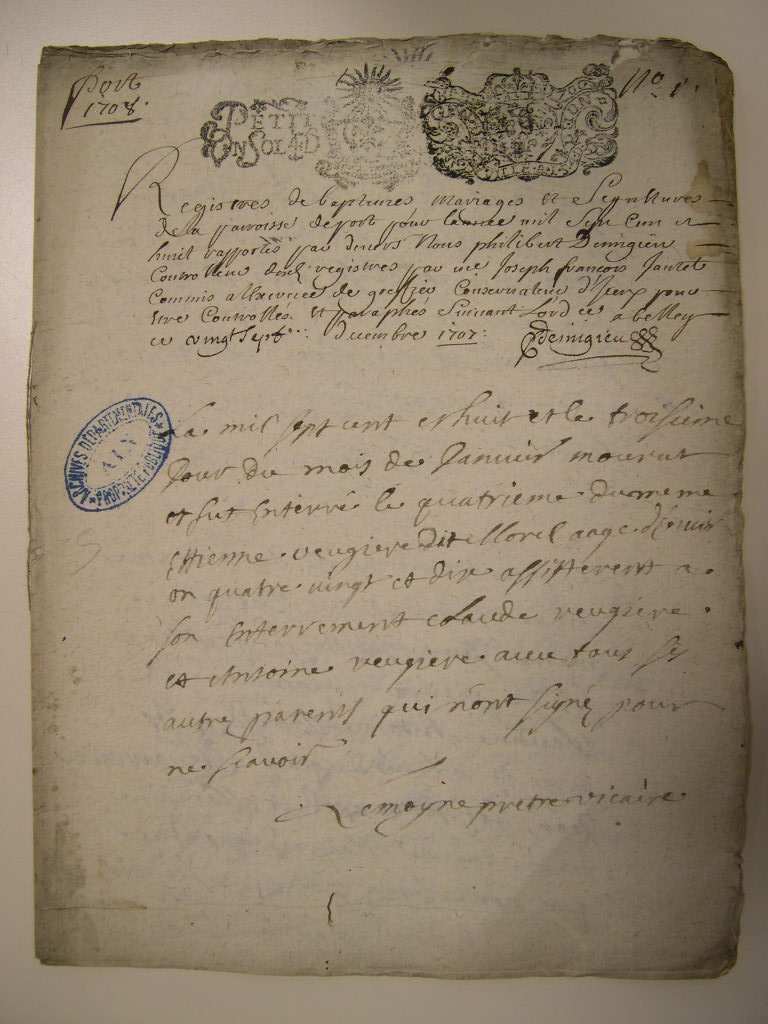 Port
1708.
No. 1.
PETIT
UN SOL 4 D
Registres de baptemes Mariages Et Sepultures
de la parroisse de port pour lannee mil sept Cent et
huit rapportés par devers Nous philibert Demigieu
Controlleur desd registres par me Joseph françois Jantet
Commis a l'exercice de greffier Conservateur d'Iceux pour
Etre Controllés et paraphés Suivant L'ord a belley
ce vingt sept decembre 1707.
Demigieu
La mil sept cent et huit et le troisieme
Jour du mois de Janvier mourut
et fut Enterré le quatrieme du meme
Ettienne veugiere dit Morel aage d'envir
on quatre vingt et dix assisterent a
son Enterrement claude veugiere
et Antoine veugiere avec tous ses
autre parents qui n'ont signé pour
ne scavoir
Lemoyne pretre vicaire
ARCHIVES DEPARTEMENTALES
AIN
PROPRIETE PUBLIQUE